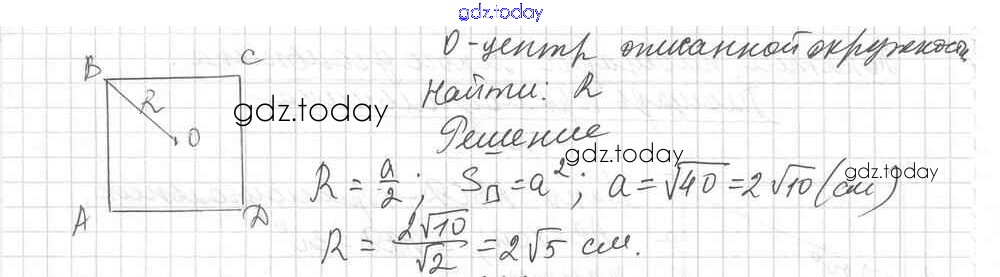 gdz.today
O-центр описанной окружности
B
C
R
Найти: R
gdz.today
O
Решение
gdz.today
gdz.today
R = a/2; S□ = a²; a = √40 = 2√10 (см)
A
D
R = 2√10/√2 = 2√5 см.